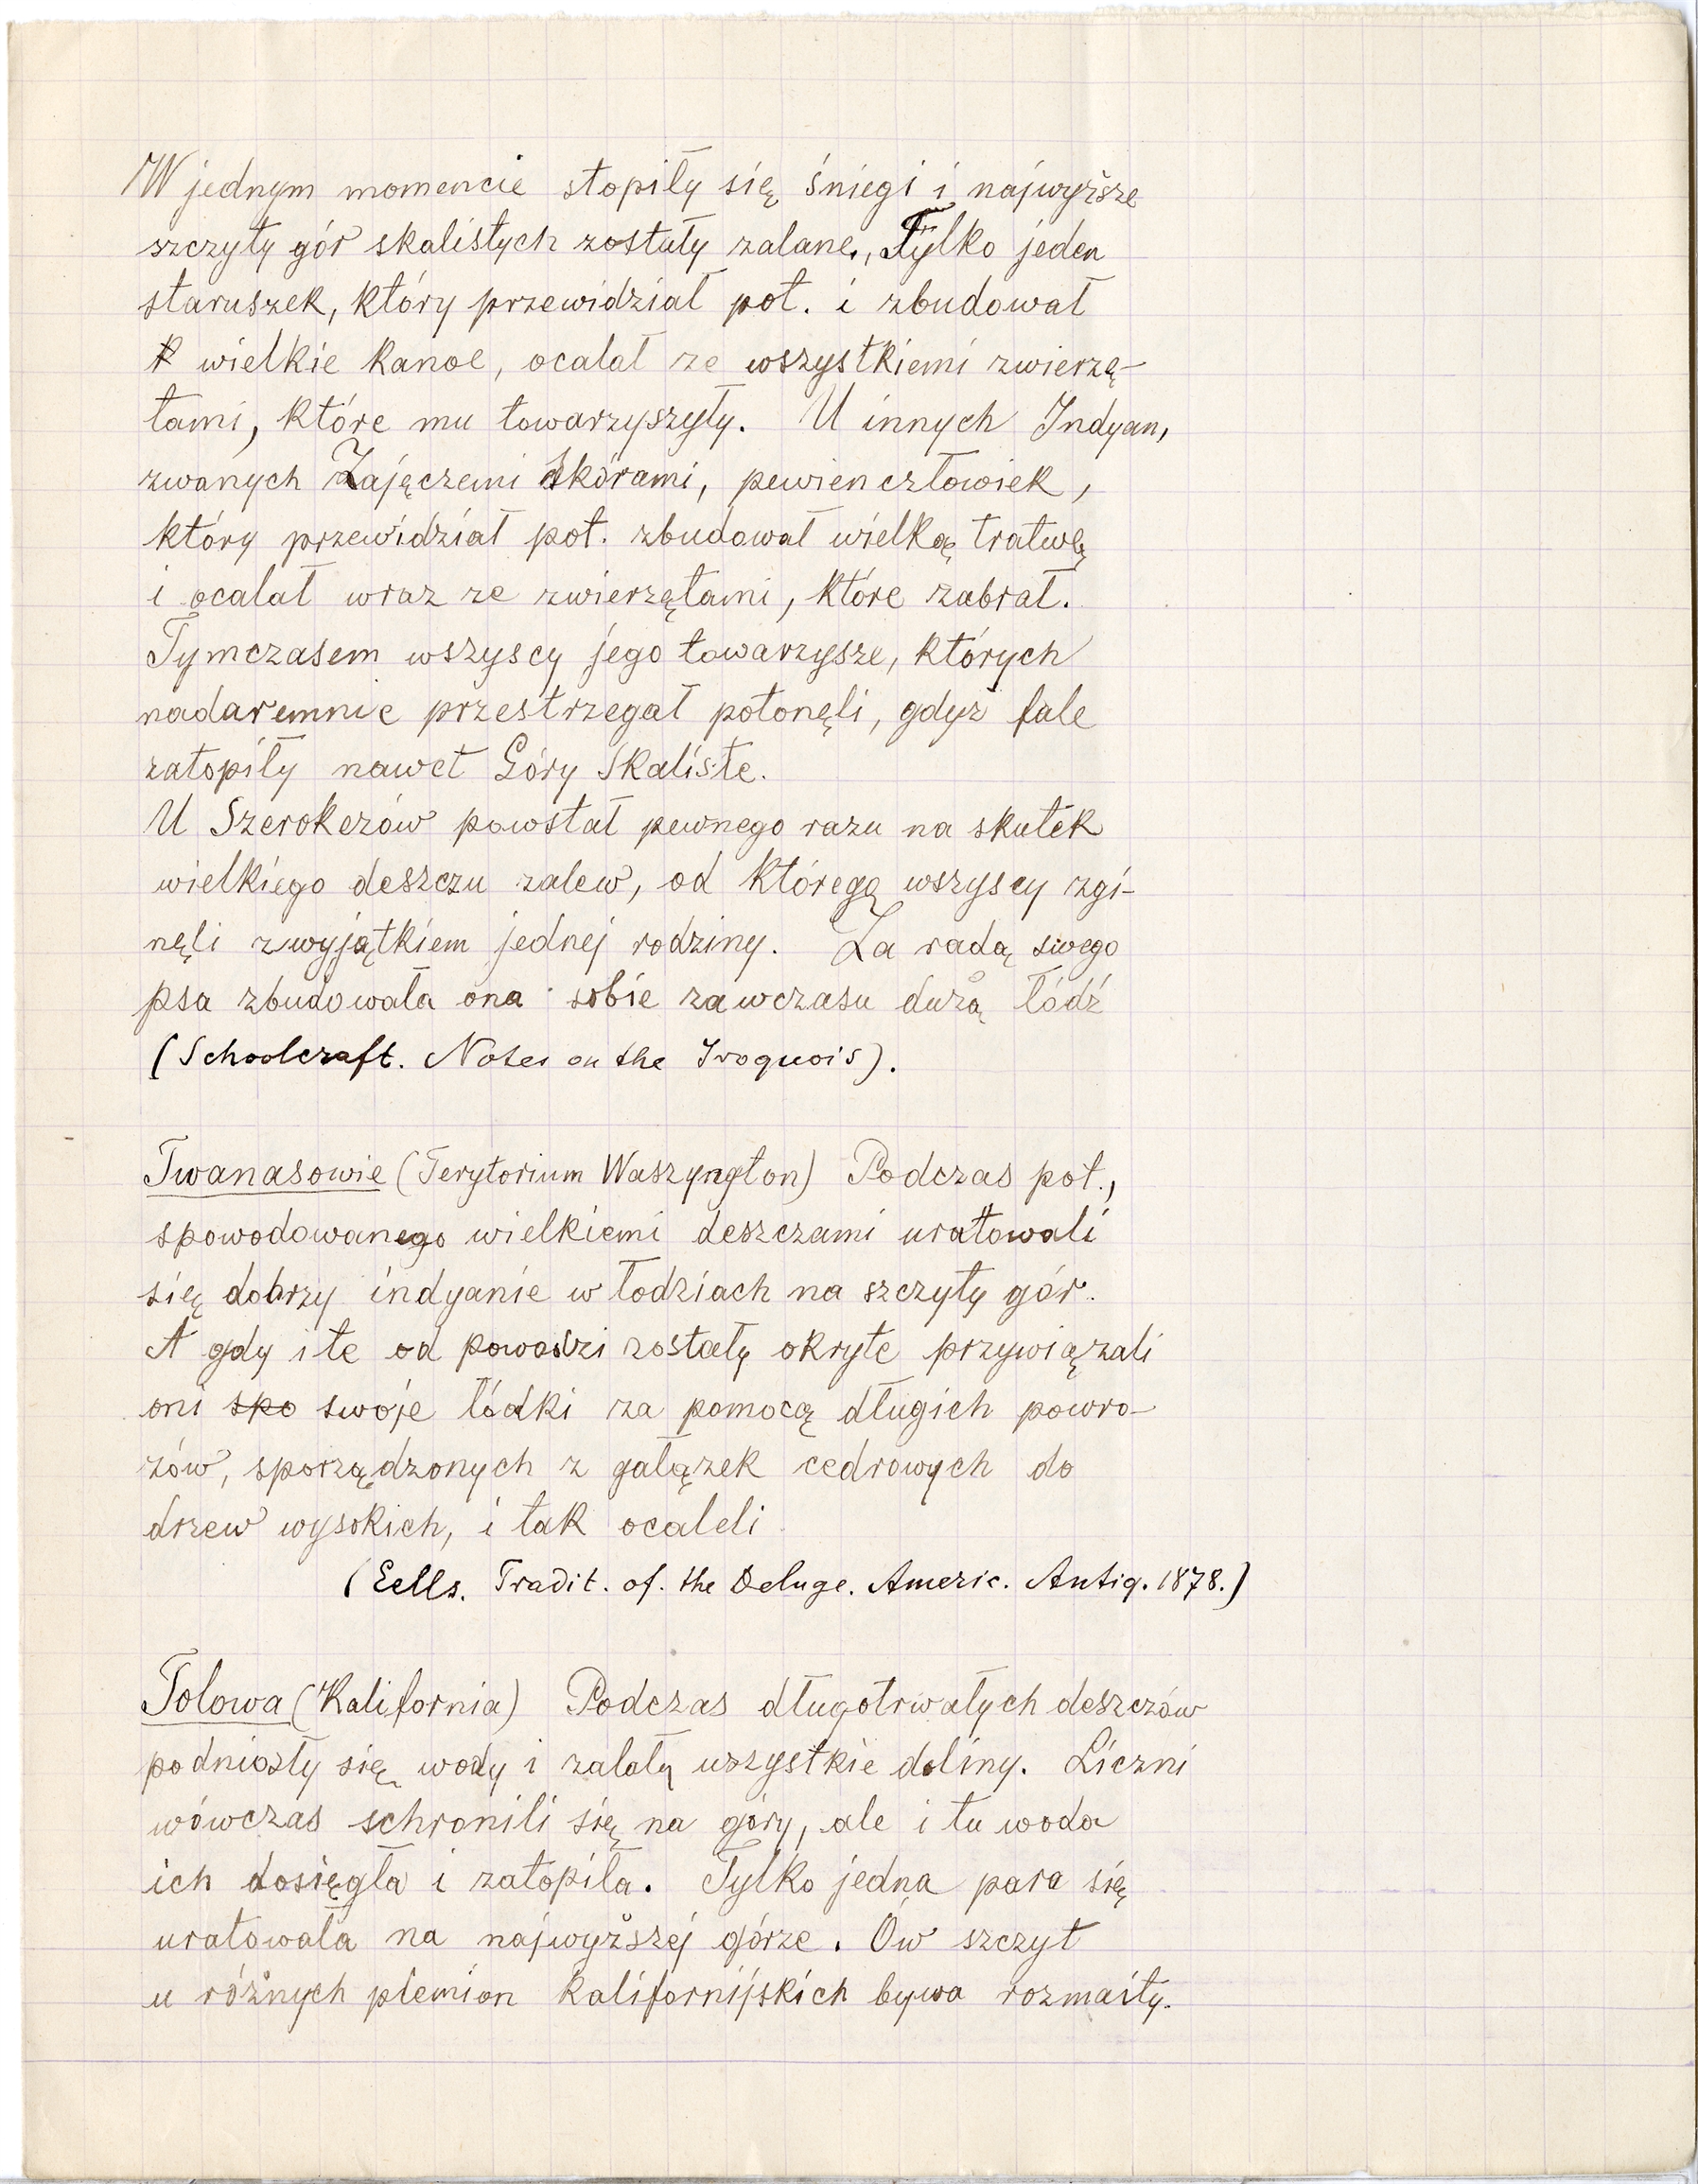 W jednym momencie stopiły się śniegi i najwyższe
szczyty gór skalistych zostały zalane., Tylko jeden
staruszek, który przewidział pot. i zbudował
k wielkie kanoe, ocalał ze wszystkiemi zwierzę-
tami, które mu towarzyszyły. U innych Indyan,
zwanych Zajęczemi Skórami, pewien człowiek,
który przewidział pot. zbudował wielką tratwę
i ocalał wraz ze zwierzętami, które zabrał.
Tymczasem wszyscy jego towarzysze, których
nadaremnie przestrzegał potonęli, gdyż fale
zatopiły nawet Góry Skaliste.
U Szerokezów powstał pewnego razu na skutek
wielkiego deszczu zalew, od którego wszyscy zgi-
nęli z wyjątkiem jednej rodziny. Za radą swego
psa zbudowała ona sobie zawczasu dużą łódź
(Schoolcraft. Notes on the Iroquois).
Twanasowie (Terytorium Waszyngton) Podczas pot.,
spowodowanego wielkiemi deszczami uratowali
się dobrzy indyanie w łodziach na szczyty gór.
A gdy i te od powodzi zostały okryte przywiązali
oni spo swoje łódki za pomocą długich powro-
zów, sporządzonych z gałązek cedrowych do
drzew wysokich, i tak ocaleli
(Eells. Tradit. of. the Deluge. Americ. Antiq. 1878.)
Tolowa (Kalifornia) Podczas długotrwałych deszczów
podniosły się wody i zalały wszystkie doliny. Liczni
wówczas schronili się na góry, ale i tu woda
ich dosięgła i zatopiła. Tylko jedna para się
uratowała na najwyższej górze. Ów szczyt
u różnych plemion kalifornijskich bywa rozmaity.